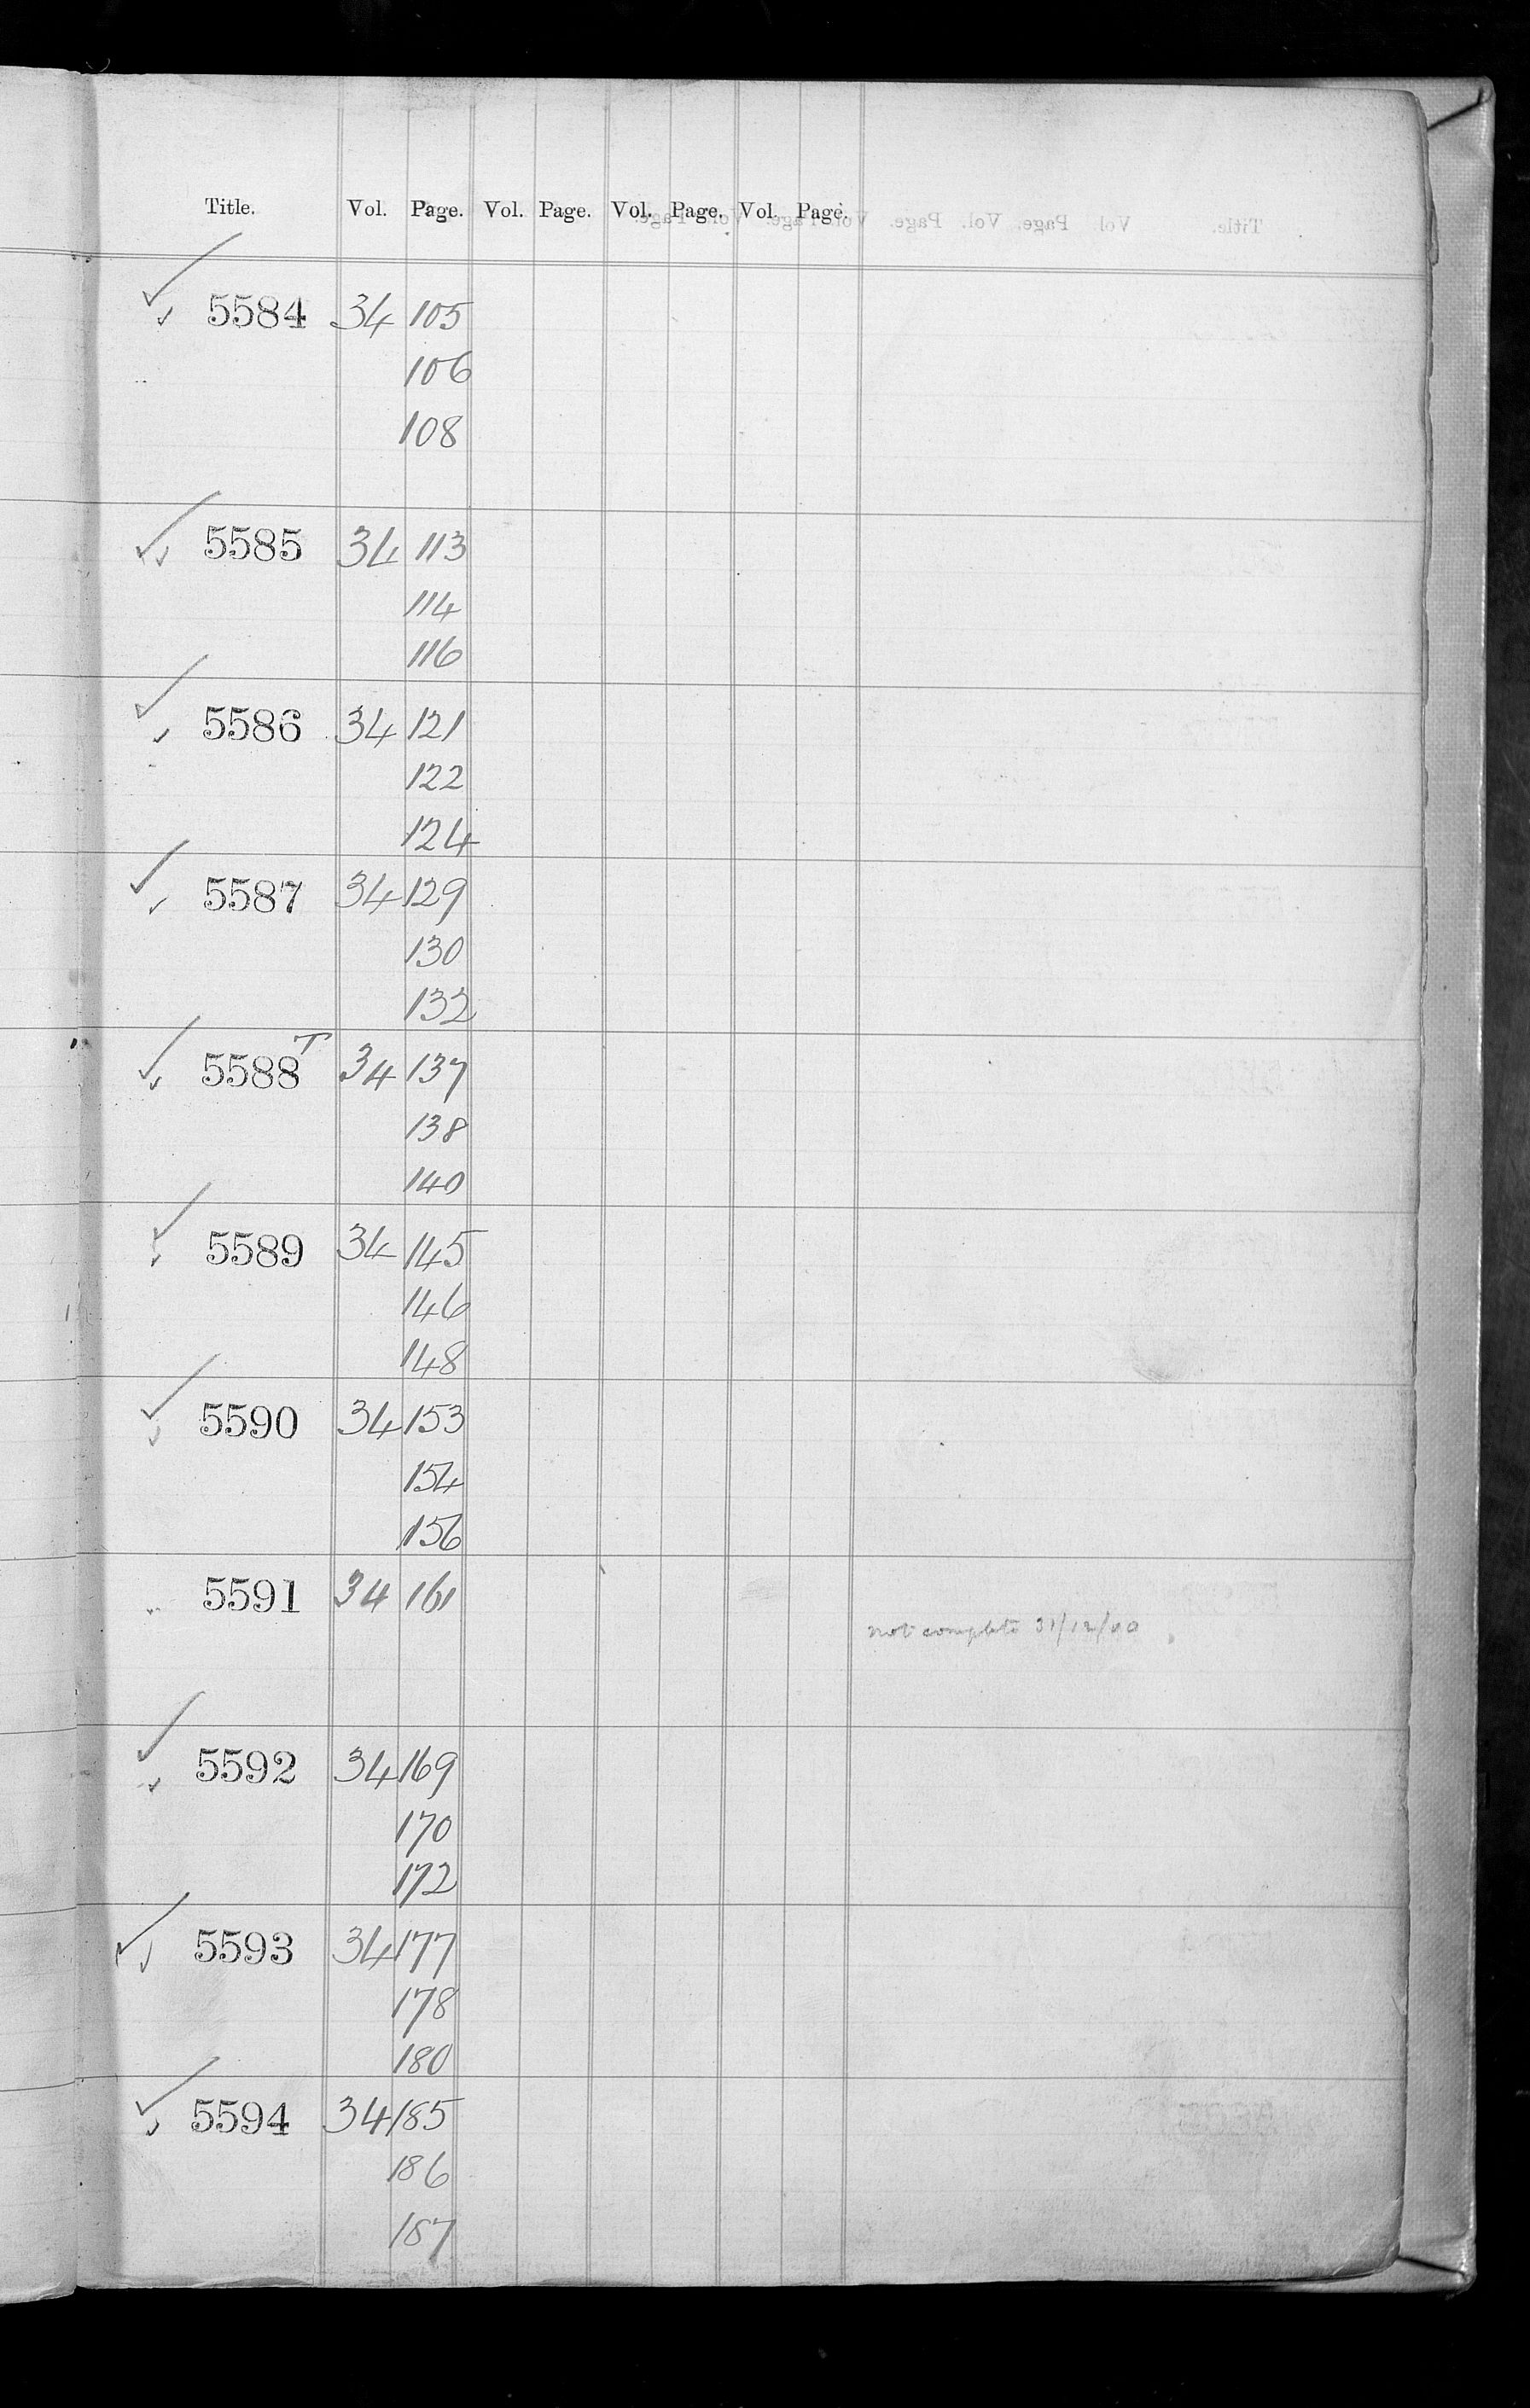 Title. Vol. Page. Vol. Page. Vol. Page. Vol. Page.
✓ ✓ 5584 34 105
106
108
✓ ✓ 5585 34 113
114
116
✓ ✓ 5586 34 121
122
124
✓ ✓ 5587 34 129
130
132
✓ ✓ 5588 T 34 137
138
140
✓ ✓ 5589 34 145
146
148
✓ ✓ 5590 34 153
154
156
5591 34 161
not complete 31/12/40
✓ ✓ 5592 34 169
170
172
✓ ✓ 5593 34 177
178
180
✓ ✓ 5594 34 185
186
187